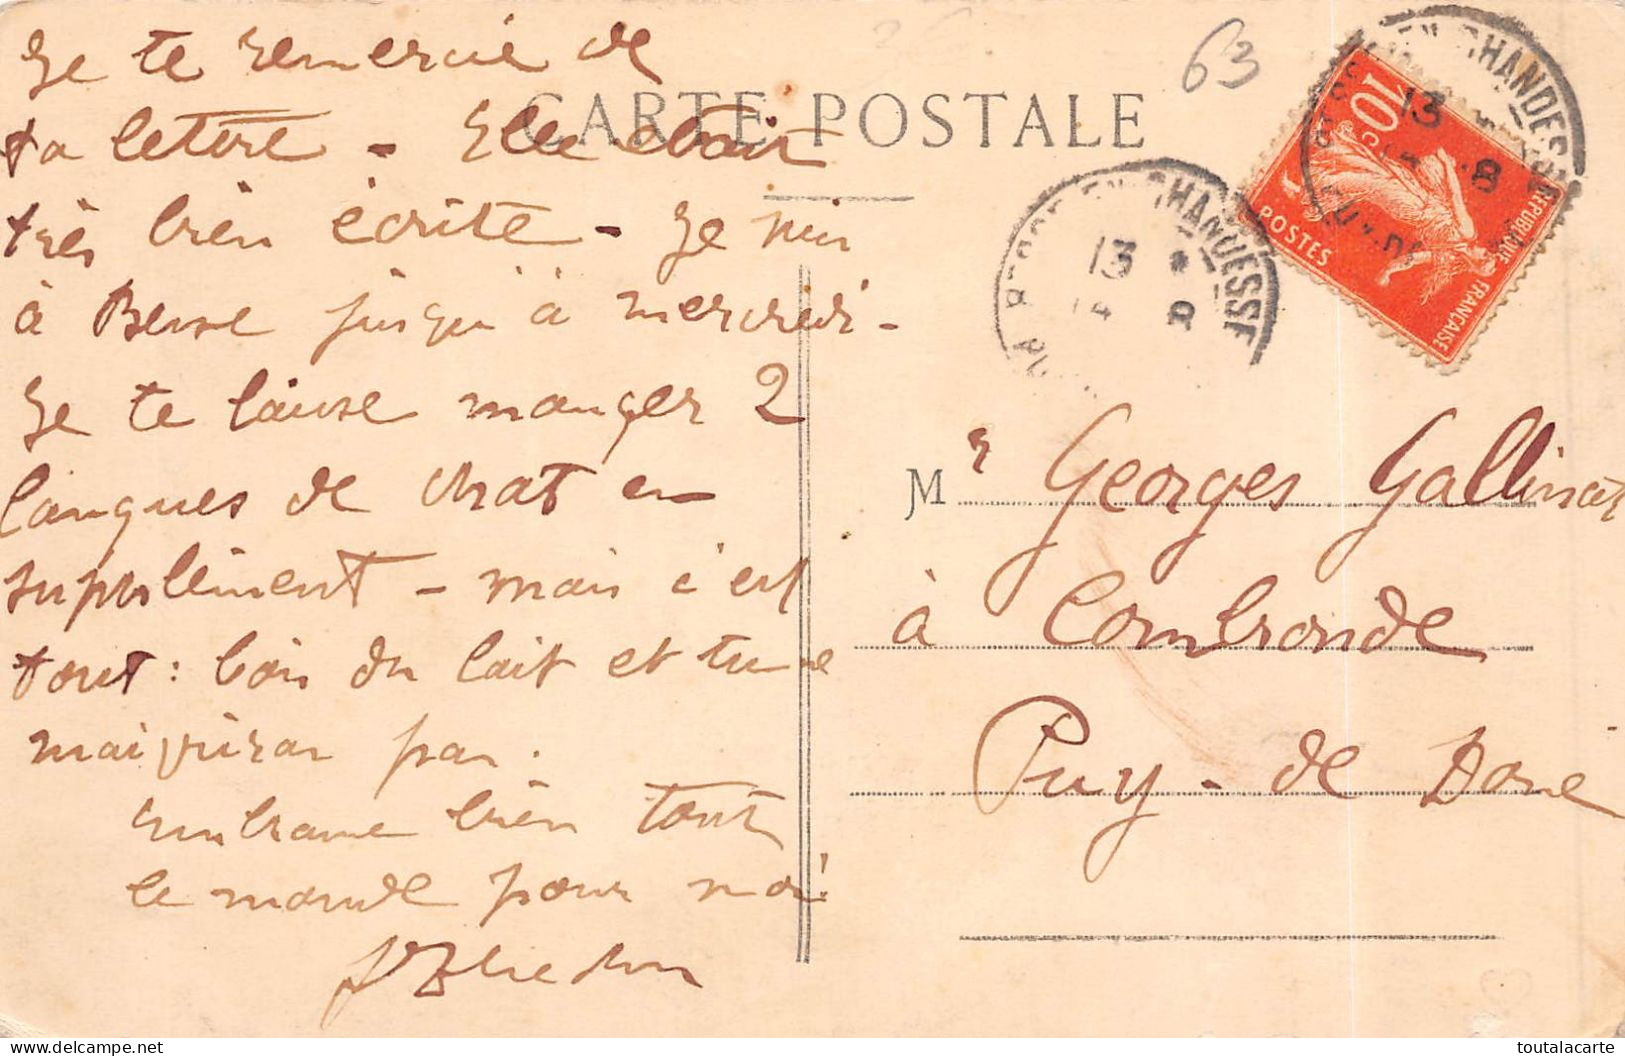 Je te remercie de
ta lettre - Elle était
très bien écrite - Je suis
à Besse jusqu'à mercredi -
Je te laisse manger 2
langues de chat en
supplément - mais c'est
tout : bois du lait et tu ne
maigriras pas.
Embrasse bien tout
le monde pour moi
CARTE POSTALE
63
13
8
10c
POSTES
REPUBLIQUE FRANÇAISE
EN CHANDESSE
13
8
Mr Georges Gallinat
à Combronde
Puy-de Dôme
toutalacarte